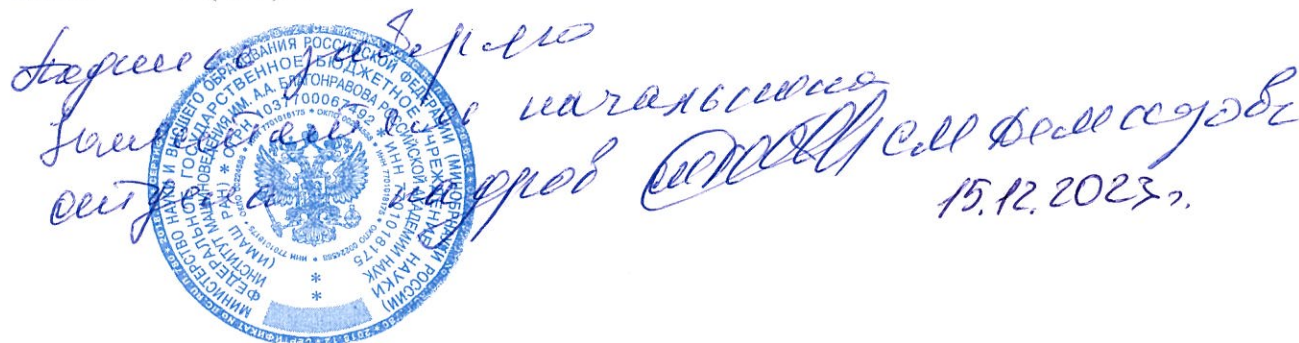 Подпись заверяю
Заместитель начальника
отдела кадров
15.12.2023г.
МИНИСТЕРСТВО НАУКИ И ВЫСШЕГО ОБРАЗОВАНИЯ РОССИЙСКОЙ ФЕДЕРАЦИИ (МИНОБРНАУКИ РОССИИ)
ФЕДЕРАЛЬНОЕ ГОСУДАРСТВЕННОЕ БЮДЖЕТНОЕ УЧРЕЖДЕНИЕ НАУКИ
ИНСТИТУТ МАШИНОВЕДЕНИЯ ИМ. А.А. БЛАГОНРАВОВА РОССИЙСКОЙ АКАДЕМИИ НАУК
(ИМАШ РАН) * ОГРН 1037700067492 * ИНН 7701018175
* ИНН 7701018175 * ОКПО 00224588